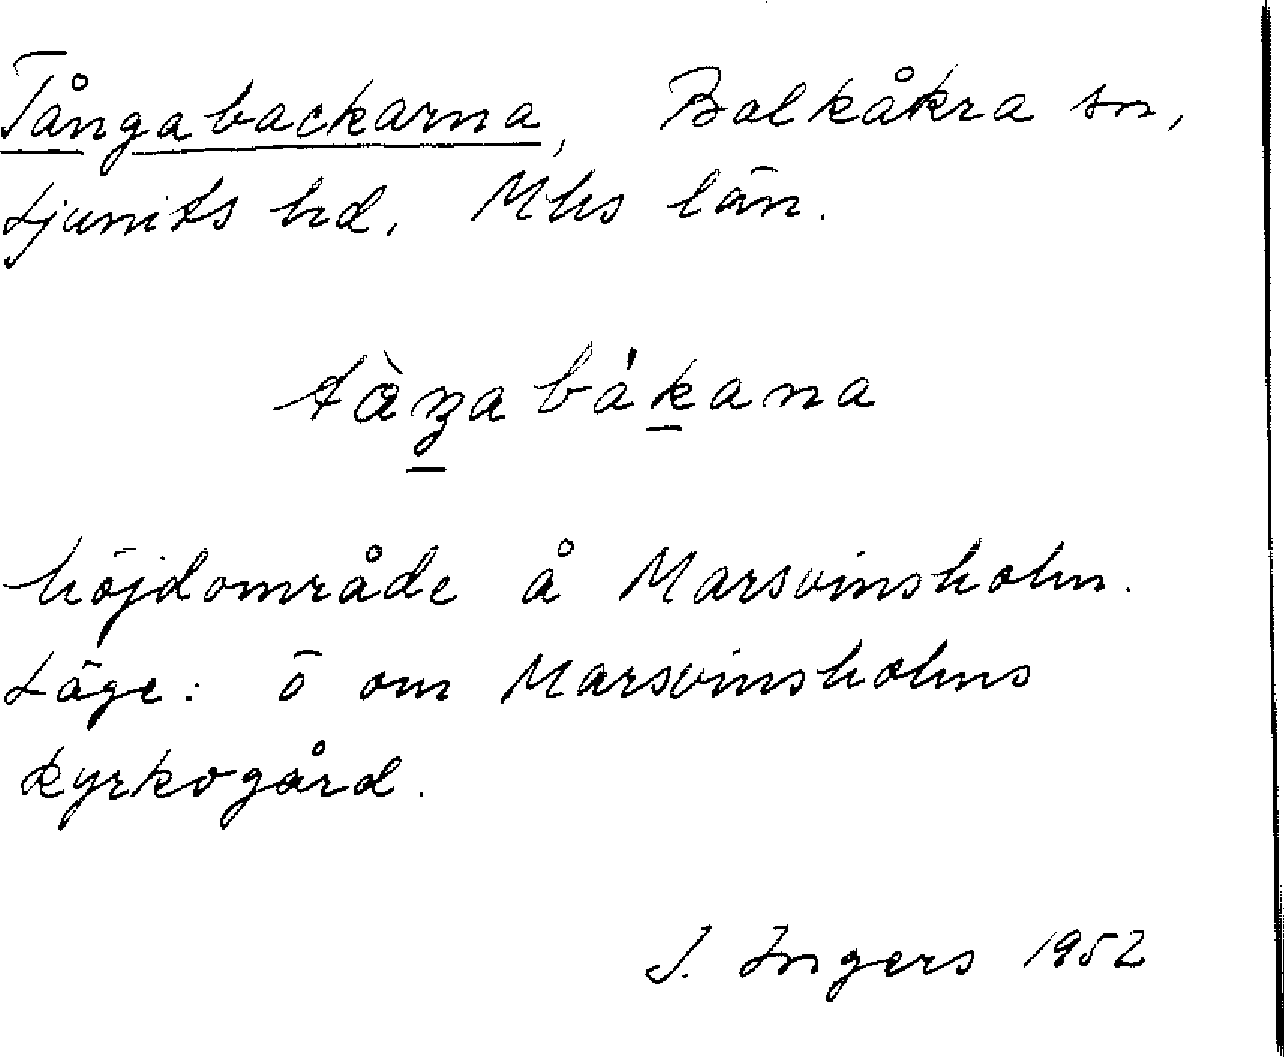 Tångabackarna, Balkåkra sn,
Ljunits hd, Mhs län.
tàŋabákana
höjdområde å Marsvinsholm.
Läge: ö om Marsvinsholms
kyrkogård.
I. Ingers 1952